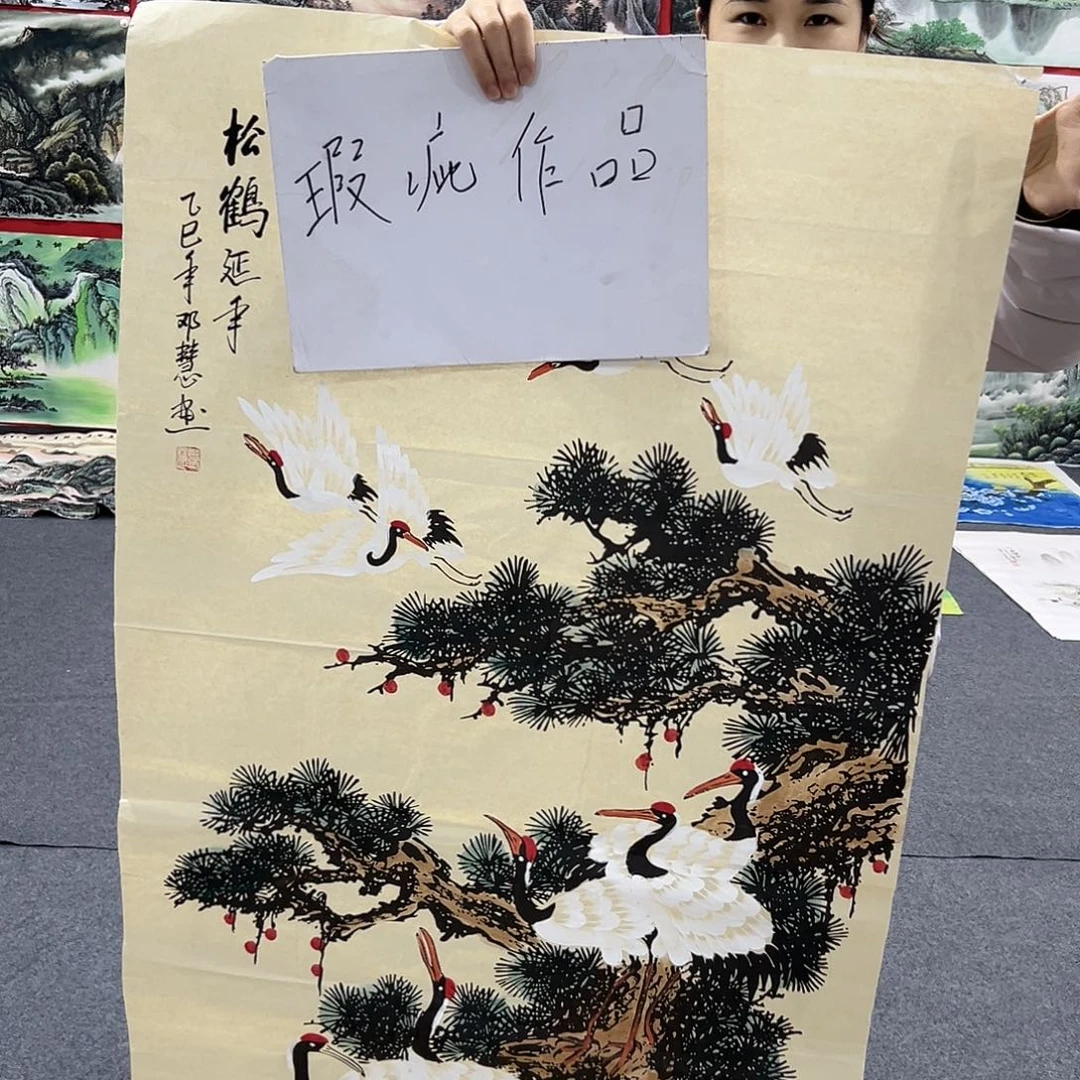 瑕疵作品
松鹤延年
乙巳年邓慧画